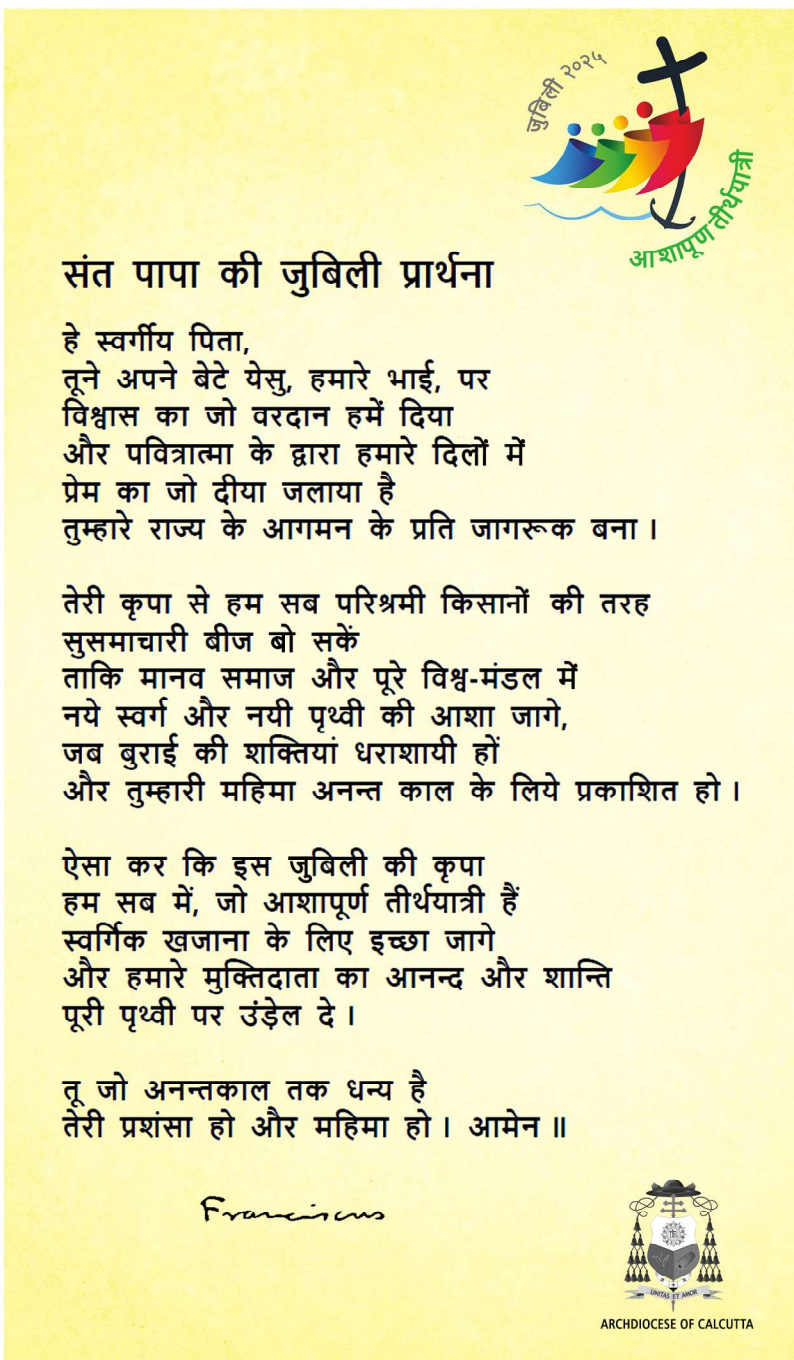 जुबिली २०२५
आशापूण तीर्थयात्री
संत पापा की जुबिली प्रार्थना
हे स्वर्गीय पिता,
तूने अपने बेटे येसु, हमारे भाई, पर
विश्वास का जो वरदान हमें दिया
और पवित्रात्मा के द्वारा हमारे दिलों में
प्रेम का जो दीया जलाया है
तुम्हारे राज्य के आगमन के प्रति जागरूक बना ।
तेरी कृपा से हम सब परिश्रमी किसानों की तरह
सुसमाचारी बीज बो सकें
ताकि मानव समाज और पूरे विश्व-मंडल में
नये स्वर्ग और नयी पृथ्वी की आशा जागे,
जब बुराई की शक्तियां धराशायी हों
और तुम्हारी महिमा अनन्त काल के लिये प्रकाशित हो ।
ऐसा कर कि इस जुबिली की कृपा
हम सब में, जो आशापूर्ण तीर्थयात्री हैं
स्वर्गिक खजाना के लिए इच्छा जागे
और हमारे मुक्तिदाता का आनन्द और शान्ति
पूरी पृथ्वी पर उंड़ेल दे ।
तू जो अनन्तकाल तक धन्य है
तेरी प्रशंसा हो और महिमा हो । आमेन ॥
Franciscus
UNITAS ET AMOR
ARCHDIOCESE OF CALCUTTA